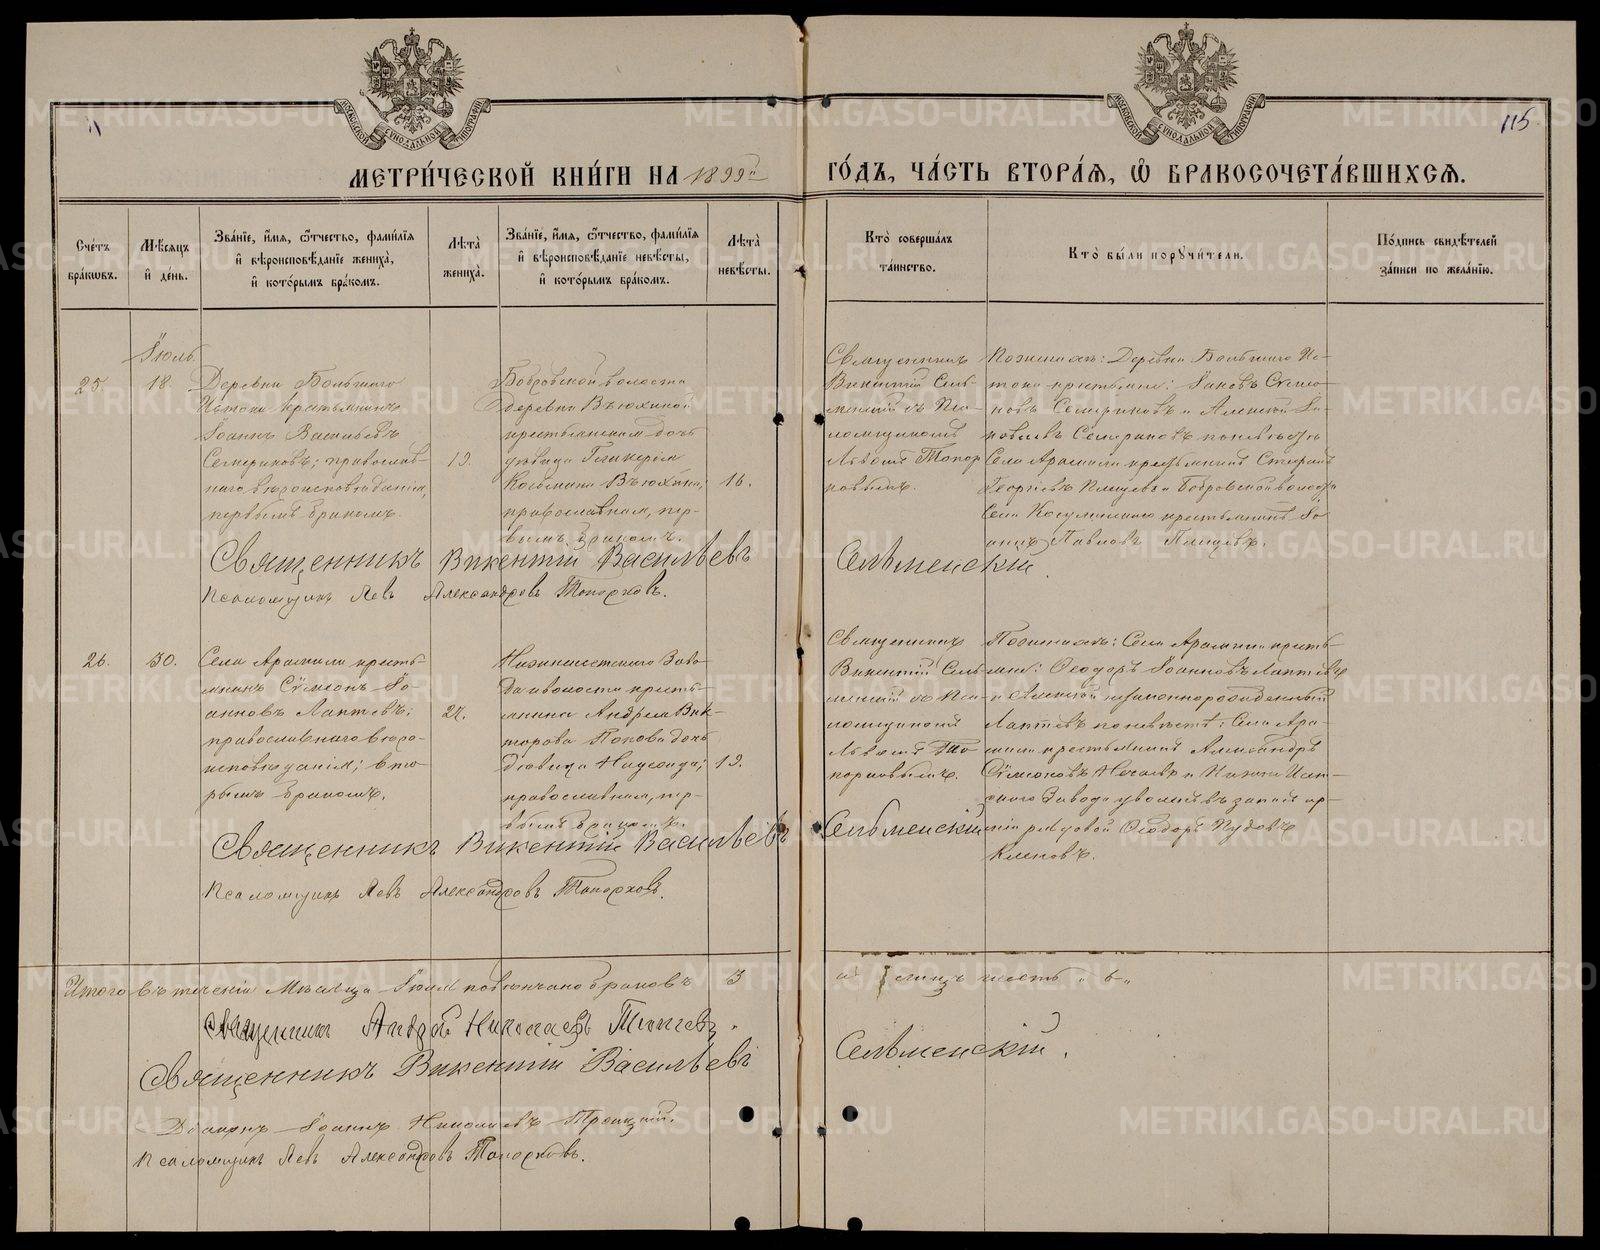 115
МЕТРИ́ЧЕСКОЙ КНИ́ГИ НА 1899й ГО́ДЪ, ЧА́СТЬ ВТОРА́Я, Ѿ БРАКОСОЧЕТА́ВШИХСЯ.
Сче́тъ бра́ковъ.
Мѣ́сяцъ и҆ де́нь.
Зва́нїе, и҆́мя, ѻ҆́тчество, фами́лїя и҆ вѣроисповѣ́данїе жениха̀, и҆ кото́рымъ бра́комъ.
Лѣ́та̀ жениха̀.
Зва́нїе, и҆́мя, ѻ҆́тчество, фами́лїя и҆ вѣроисповѣ́данїе невѣ́сты, и҆ кото́рымъ бра́комъ.
Лѣ́та̀ невѣ́сты.
Кто̀ соверша́лъ та́инство.
Кто̀ бы́ли поручи́тели.
По́дпись свидѣ́телей за́писи по жела́нїю.
Іюль
25.
18.
Деревни Большаго
Истока крестьянинъ
Іоаннъ Васильевъ
Семериковъ; православ-
наго вѣроисповѣданія,
первымъ бракомъ.
19.
Бобровской волости
деревни Вьюхиной
крестьянская дочь
дѣвица Гликерія
Косьмина Вьюхина;
православная, пер-
вымъ бракомъ.
16.
Священникъ
Викентій Сель-
менскій съ Пса-
ломщикомъ
Львомъ Топор
ковымъ.
По женихѣ: Деревни Большаго Ис-
тока крестьяне: Іаковъ Симео-
новъ Семериковъ и Алексій Іа-
ковлевъ Семериковъ по невѣстѣ
Села Арамили крестьянинъ Стефанъ
Георгіевъ Плищевъ и Бобровской волости
Села Косулинскаго крестьянинъ Іо
аннъ Павловъ Плищевъ.
Священникъ Викентій Васильевъ Сельменскій
Псаломщикъ Левъ Александровъ Топорковъ.
26.
30.
Села Арамили кресть-
янинъ Симеонъ Іо-
анновъ Лаптевъ;
православнаго вѣро-
исповѣданія; вто
рымъ бракомъ.
24.
Нижнеисетскаго Заво-
да и волости кресть-
янина Андрея Вик-
торова Попова дочь
дѣвица Надежда;
православная, пер-
вымъ бракомъ.
19.
Священникъ
Викентій Сель-
менскій съ Пса-
ломщикомъ
Львомъ То
порковымъ.
По женихѣ: Села Арамили кресть-
яне: Ѳеодоръ Іоанновъ Лаптевъ
и Алексій незаконнорожденный
Лаптевъ по невѣстѣ: Села Ара-
мили крестьянинъ Александръ
Симеоновъ Нечаевъ и Нижне Исет-
скаго Завода уволенъ въ запасъ ар-
міи рядовой Ѳеодоръ Пудовъ
Климовъ.
Священникъ Викентій Васильевъ Сельменскій
Псаломщикъ Левъ Александровъ Топорковъ.
Итого въ теченіи Мѣсяца Іюля повѣнчано браковъ 3
Священникъ Андрей Николаевъ
Священникъ Викентій Васильевъ Сельменскій.
Діаконъ Іоаннъ Николаевъ Троицкій.
Псаломщикъ Левъ Александровъ Топорковъ.
METRIKI.GASO-URAL.RU